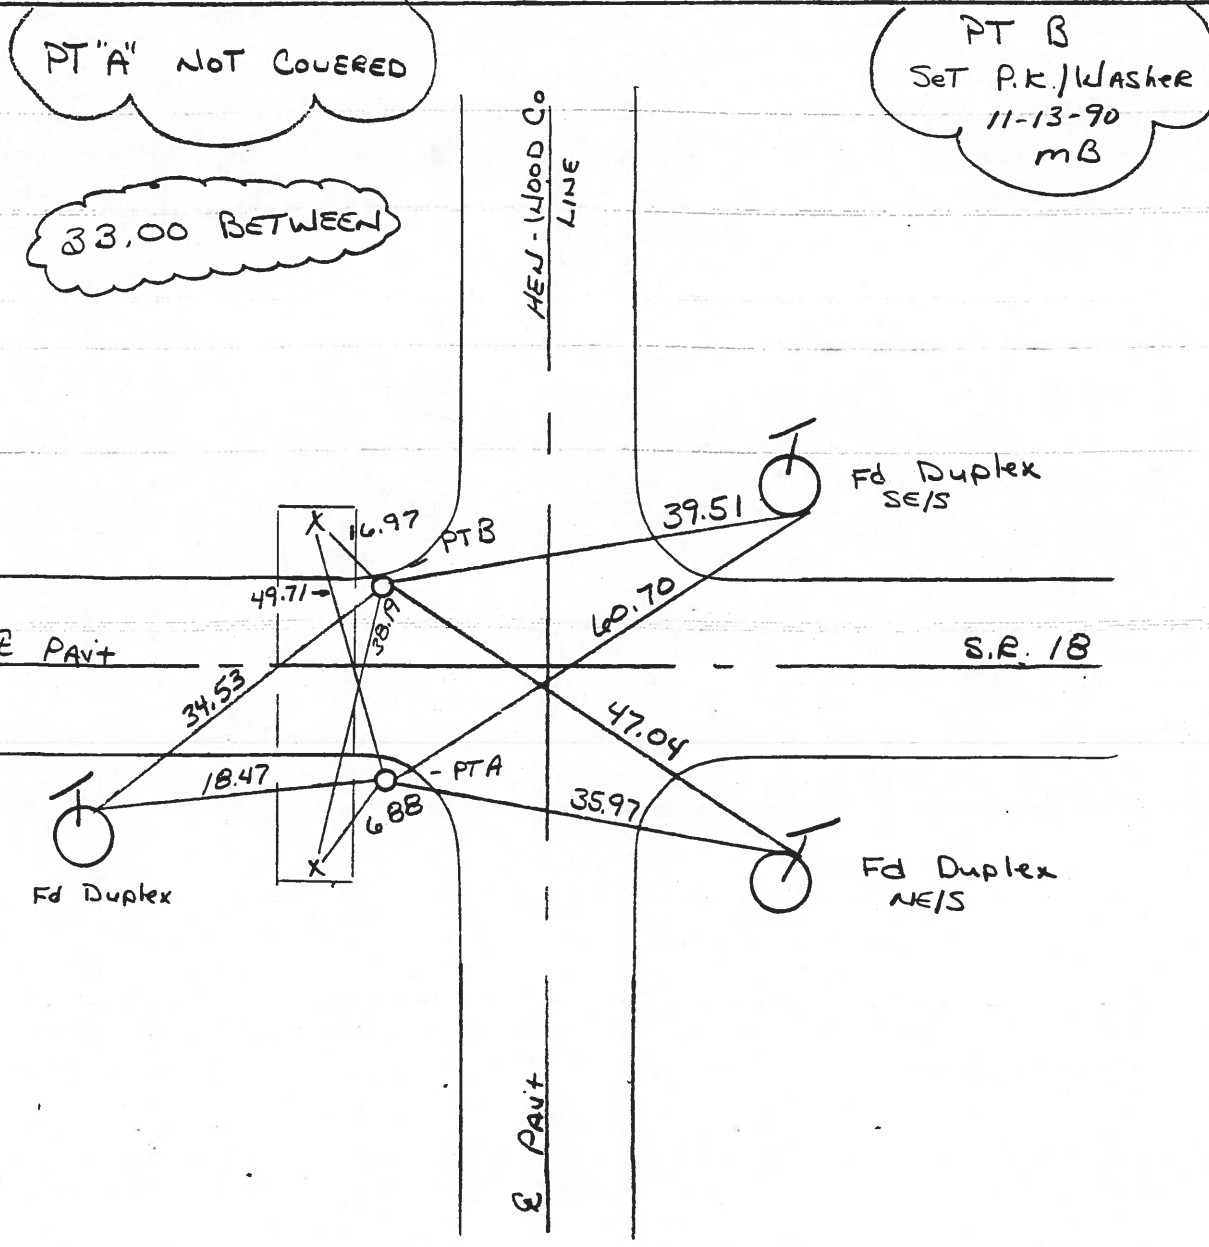 PT "A" NOT COVERED
PT B
SET P.K./WASHER
11-13-90
MB
33.00 BETWEEN
HEN-WOOD Co
LINE
Fd Duplex
SE/S
39.51
16.97
PTB
49.71
38.19
60.70
E PAv't
S.R. 18
34.53
47.04
18.47
- PTA
6.88
35.97
Fd Duplex
Fd Duplex
NE/S
℄ PAv't